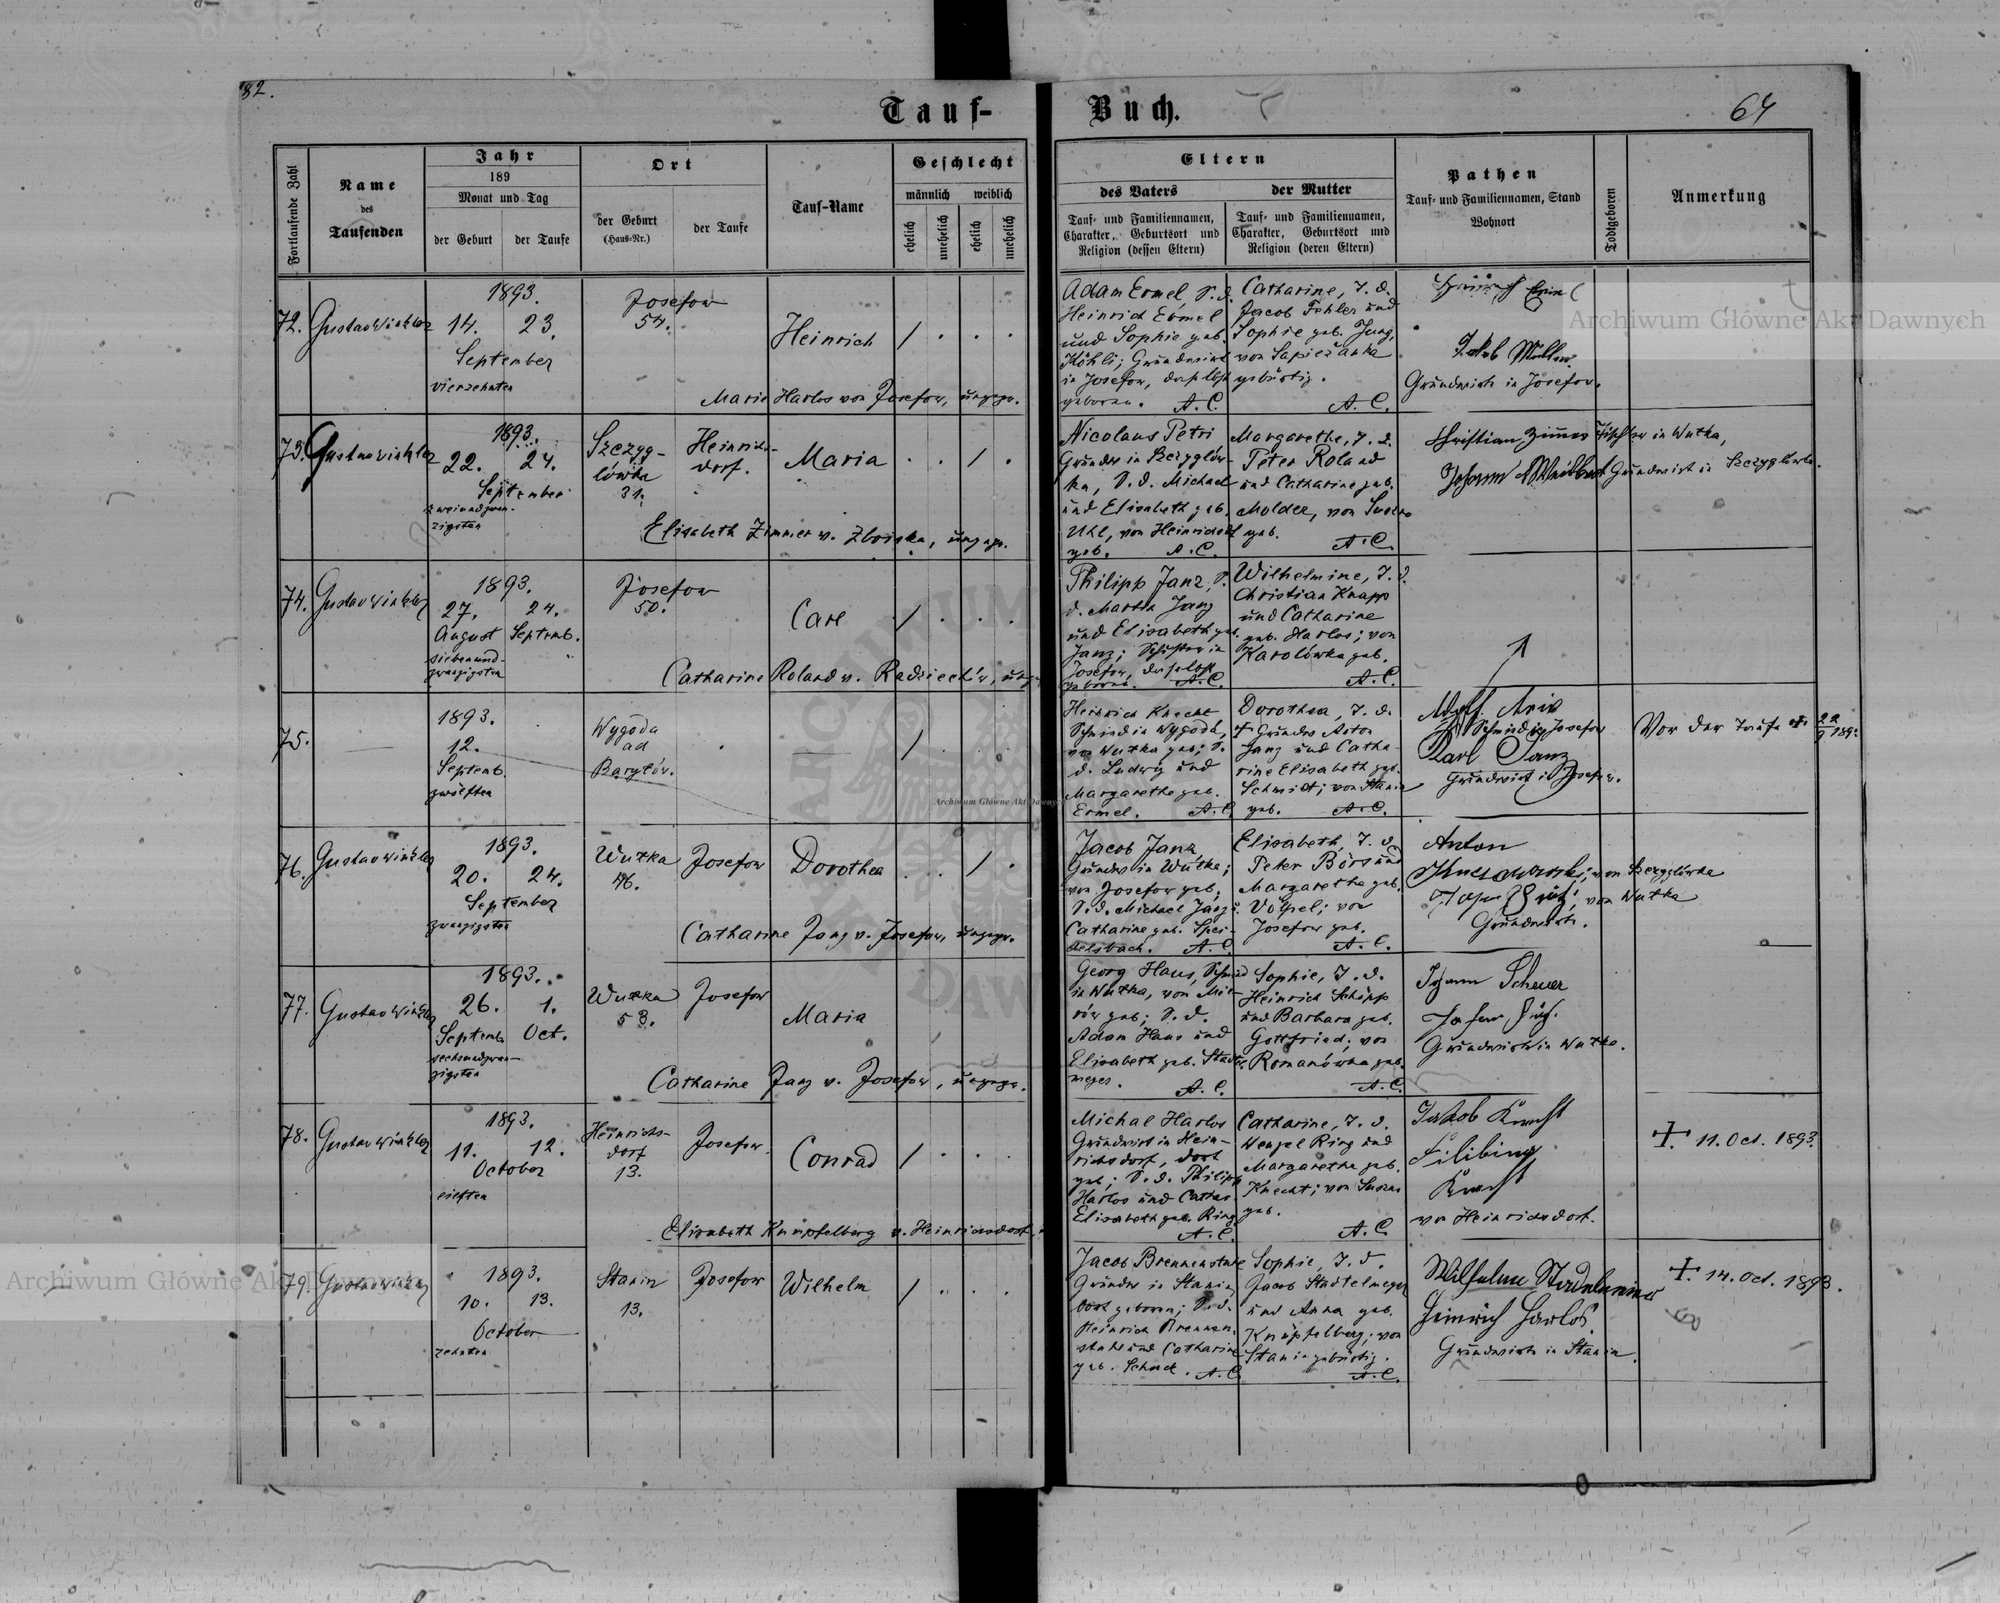 82.
Tauf-
Buch.
64
Fortlaufende Zahl
Name
des
Taufenden
Jahr
189
Monat und Tag
der Geburt
der Taufe
Ort
der Geburt
(Haus-Nr.)
der Taufe
Tauf-Name
Geschlecht
männlich
weiblich
ehelich
unehelich
ehelich
unehelich
Eltern
des Vaters
Tauf- und Familiennamen,
Charakter, Geburtsort und
Religion (dessen Eltern)
der Mutter
Tauf- und Familiennamen,
Charakter, Geburtsort und
Religion (deren Eltern)
Pathen
Tauf- und Familiennamen, Stand
Wohnort
Todtgeboren
Anmerkung
72.
Gustav Winkler
1893.
14. 23.
September
vierzehnten
Josefow
54.
Heinrich
/ . . .
Marie Harlos von Josefow, ungepr.
Adam Ermel, S. d.
Heinrich Ermel
und Sophie geb.
Köhli; Grundwirt
in Josefow, daselbst
geboren. A. C.
Catharine, T. d.
Jacob Fohler und
Sophie geb. Jung,
von Sapieżanka
gebürtig.
A. C.
Jakob Müller
Grundwirte in Josefow.
73.
Gustav Winkler
1893.
22. 24.
September
zweiundzwan-
zigsten
Szczyg-
lówka
31.
Heinrichs-
dorf.
Maria
. . / .
Elisabeth Zimmer v. Zboiska, ungepr.
Nicolaus Petri
Grundw in Szczyglów-
ka, S. d. Michael
und Elisabeth geb.
Uhl, von Heinrichsdf
geb. A. C.
Margarethe, T. d.
Peter Roland
und Catharine geb.
Molder, von
geb.
A. C.
Christian Zimmer Tischler in Wutka,
Johann Grundwirt in Szczyglówka.
74.
Gustav Winkler
1893.
27. 24.
August Septemb.
siebenund-
zwanzigsten
Josefow
50.
Carl
/ . . .
Catharine Roland v. Radziechów,
Philipp Janz, S.
d. Martin Janz
und Elisabeth geb.
Janz; Schuster in
Josefow, daselbst
geboren. A. C.
Wilhelmine, T. d.
Christian Knapp
und Catharine
geb. Harlos; von
Karolówka geb.
A. C.
75.
1893.
12.
Septemb.
zwölften
Wygoda
ad
Barylów.
/ . . .
Heinrich Knecht
Schmied in Wygoda,
von Wutka geb; S.
d. Ludwig und
Margarethe geb.
Ermel. A. C.
Dorothea, T. d.
+ Grundw Anton
Janz und Catha-
rine Elisabeth geb.
Schmidt; von Stanin
geb. A. C.
Schmied in Josefow
Karl Janz
Grundwirt in Josefow.
Vor der Taufe
76.
Gustav Winkler
1893.
20. 24.
September
zwanzigsten
Wutka
46.
Josefow
Dorothea
. . / .
Catharine Janz v. Josefow, ungepr.
Jacob Janz
Grundw in Wutka;
von Josefow geb;
S. d. Michael Janz u.
Catharine geb. Spei-
delsbach. A. C.
Elisabeth, T. d.
Peter Börs und
Margarethe geb.
Völpel; von
Josefow geb.
A. C.
Anton
von Szczyglówka
von Wutka
Grundwirte.
77.
Gustav Winkler
1893.
26. 1.
Septemb. Oct.
sechsundzwan-
zigsten
Wutka
53.
Josefow
Maria
Catharine Janz v. Josefow, ungepr.
Georg Haus, Schmied
in Wutka, von Mie-
rów geb; S. d.
Adam Haus und
Elisabeth geb. Stadtel-
meyer. A. C.
Sophie, T. d.
Heinrich Schipp
und Barbara geb.
Gottfried; von
Romanówka geb.
A. C.
Johann Scheuer
Grundwirte in Wutka.
78.
Gustav Winkler
1893.
11. 12.
October
eilften
Heinrichs-
dorf
13.
Josefow
Conrad
/ . . .
Elisabeth Knüpfelberg v. Heinrichsdorf,
Michal Harlos
Grundwirt in Hein-
richsdorf, dort
geb; S. d. Philipp
Harlos und Cathar.
Elisabeth geb. Ring
A. C.
Catharine, T. d.
Wenzel Ring und
Margaretha geb.
Knecht; von
geb.
A. C.
Jakob Knecht
Filibina
Knecht
von Heinrichsdorf.
+ 11. Oct. 1893.
79.
Gustav Winkler
1893.
10. 13.
October
zehnten
Stanin
13.
Josefow
Wilhelm
/ . . .
Jacob Brennenstuhl
Grundw in Stanin,
dort geboren; S. d.
Heinrich Brennen-
stuhl und Catharine
geb. Schuck. A. C.
Sophie, T. d.
Jacob Stadtelmeyer
und Anna geb.
Knüpfelberg; von
Stanin gebürtig.
A. C.
Heinrich Harlos
Grundwirte in Stanin.
+. 14. Oct. 1893.
Archiwum Główne Akt Dawnych
Archiwum Główne Akt Dawnych
Archiwum Główne Akt Dawnych